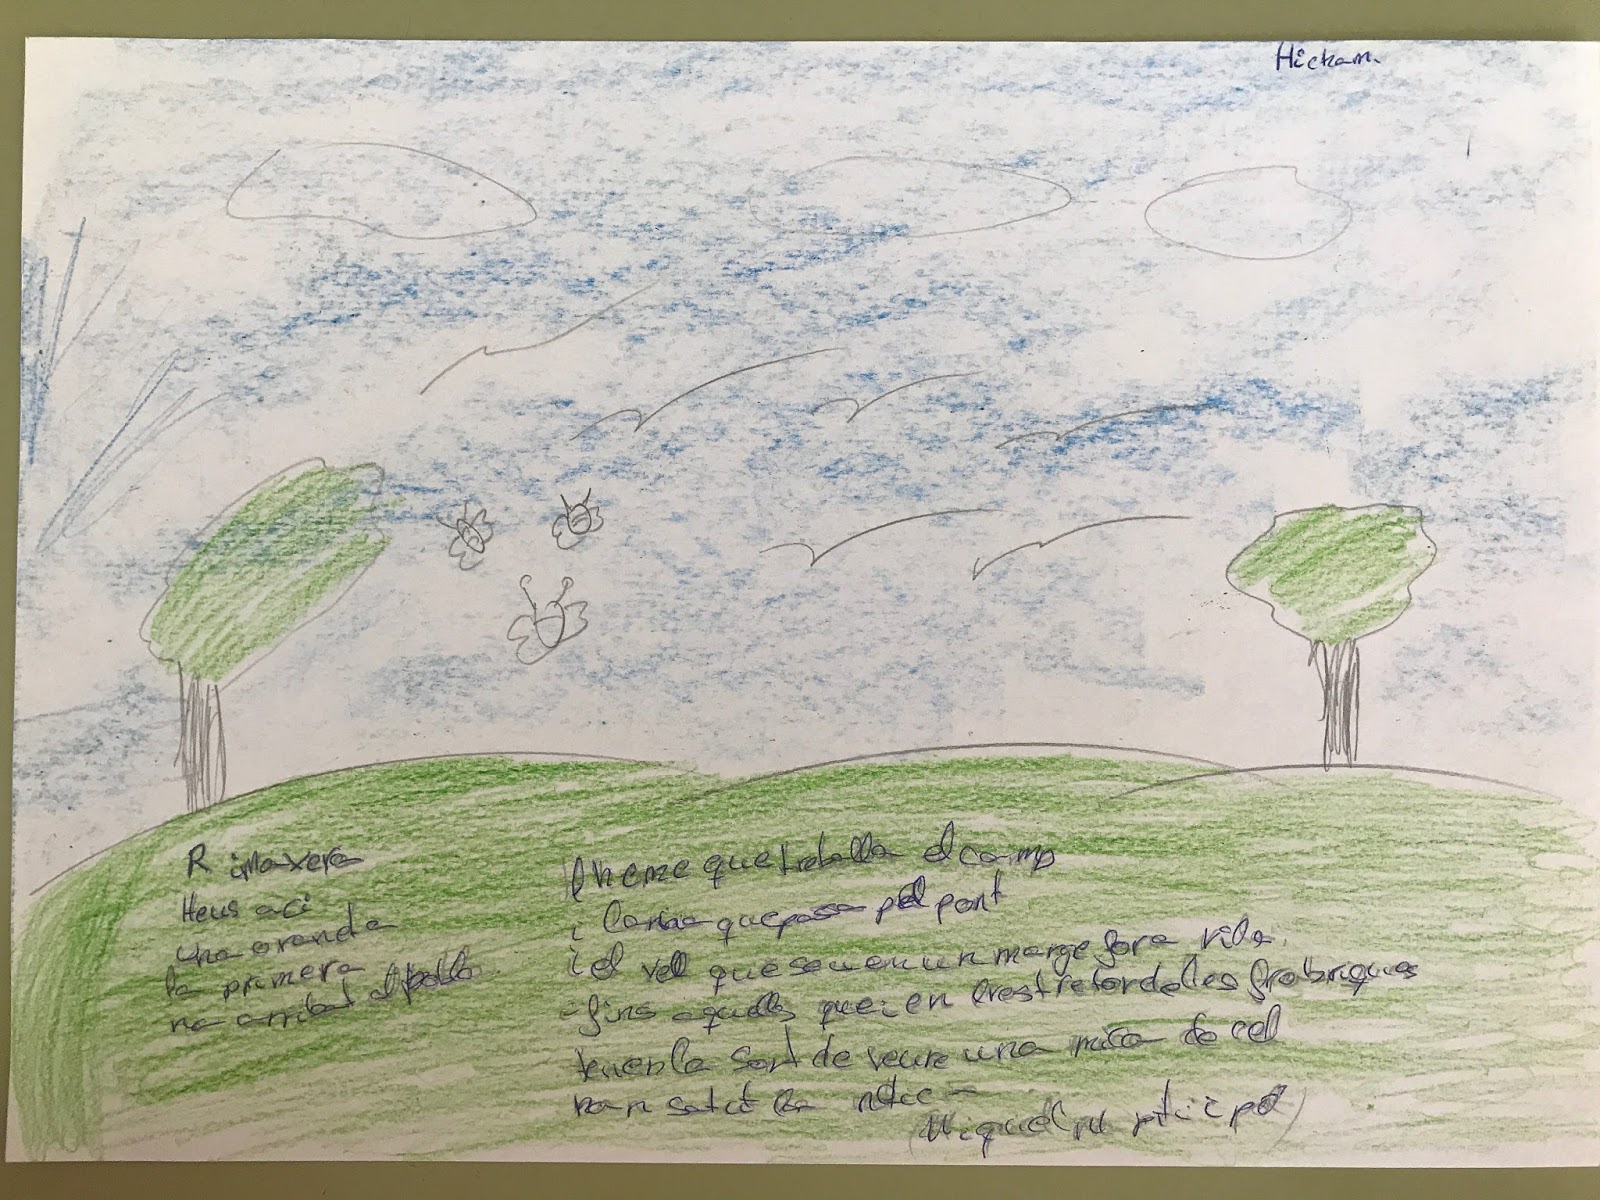 Hickam.
Rimavera
Heus aci
una oranda
la primera
na arribat al poble
l'h que treballa el camp
i que passa pel pont
i el vell que seu en un marge fora vila.
-fins aquells que en l'estretor de les frabriques
tenen la sort de veure una mica de cel
nan satut la notic-
(Miquel